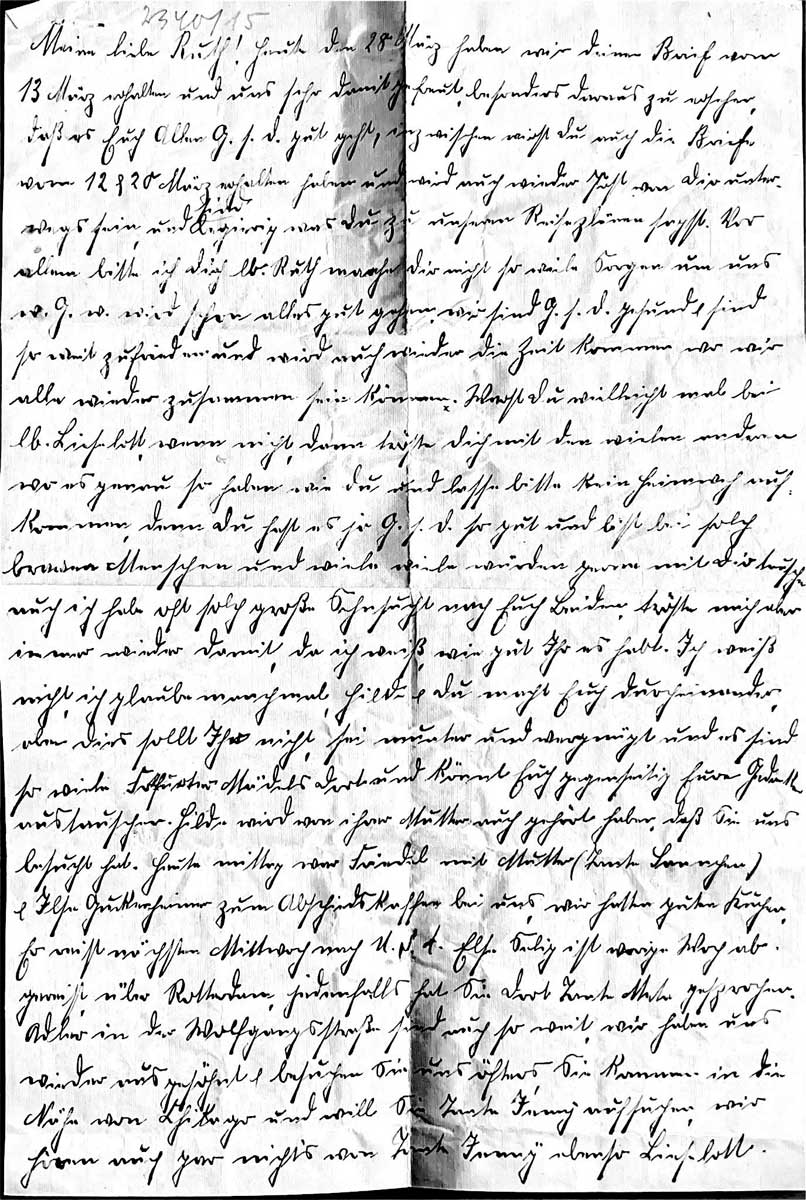 2340/15
Meine liebe Ruth! Heute den 28 März haben wir deinen Brief vom
13 März erhalten und uns sehr damit gefreut, besonders daraus zu ersehen,
daß es Euch Allen G. s. d. gut geht, inzwischen wirst du auch die Briefe
vom 12 & 20 März erhalten haben und wird auch wieder Post von dir unter-
wegs sein, und sind begierig was du zu unseren Reiseplänen sagst. Vor
allem bitte ich dich lb. Ruth mache dir nicht so viele Sorgen um uns
w. G. w. wird schon alles gut gehen, wir sind G. s. d. gesund & sind
so weit zufrieden und wird auch wieder die Zeit kommen wo wir
alle wieder zusammen sein können. Warst du vielleicht mal bei
lb. Lieselott, wenn nicht, dann tröste dich mit den vielen anderen
wo es genau so haben wie du und lasse bitte kein Heimweh auf-
kommen, denn du hast es ja G. s. d. so gut und bist bei solch
braven Menschen und viele viele würden gerne mit dir tauschen
auch ich habe oft solch große Sehnsucht nach Euch Beiden, tröste mich aber
immer wieder damit, da ich weiß, wie gut Ihr es habt. Ich weiß
nicht, ich glaube manchmal, Hilde & du macht Euch durcheinander,
aber dies sollt Ihr nicht, sei munter und vergnügt und es sind
so viele Frkfurter Mädels dort und könnt Euch gegenseitig Eure Gedanken
austauschen. Hilde wird von ihrer Mutter auch gehört haben, daß Sie uns
besucht hat. Heute mittag war Friedel mit Mutter (Tante Lannchen)
& Ilse Guckenheimer zum Abschiedskaffee bei uns, wir hatten guten Kuchen,
Er reist nächsten Mittwoch nach U. S. A. Else Selig ist vorige Woch ab-
gereist, über Rotterdam, jedenfalls hat Sie dort Tante Meta gesprochen.
Adler in der Wolfgangsstraße sind auch so weit, wir haben uns
wieder ausgesöhnt & besuchen Sie uns öfters, Sie kommen in die
Nähe von Chikago und will Sie Tante Jenny aufsuchen, wir
hören auch gar nichts von Tante Jenny ebenso Lieselott.